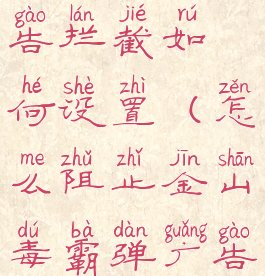 gào lán jié rú
告拦截如
hé shè zhì zěn
何设置（怎
me zhǔ zhǐ jīn shān
么阻止金山
dú bà dàn guǎng gào
毒霸弹广告